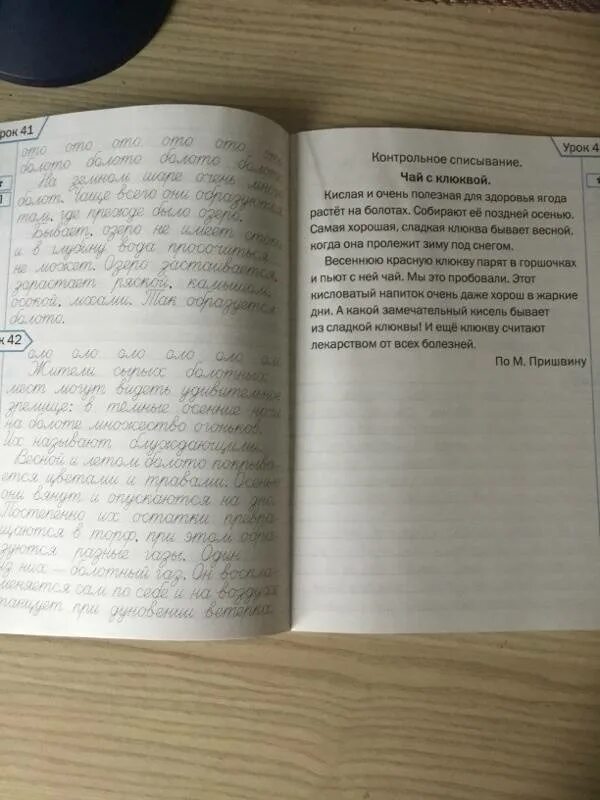 рок 41
ото ото ото ото ото
болото болото болото болото
На земном шаре очень много
болот. Чаще всего они образуются
там, где прежде было озеро.
Бывает, озеро не имеет стока
и в глубину вода просочиться
не может. Озеро застаивается,
зарастает ряской, камышом,
осокой, мхами. Так образуется
болото.
к 42
оло оло оло оло оло ол
Жители сырых болотных
мест могут видеть удивительное
зрелище: в тёмные осенние ночи
на болоте множество огоньков.
Их называют блуждающими.
Весной и летом болото покрыва-
ется цветами и травами. Осенью
они вянут и опускаются на дно.
Постепенно их остатки превра-
щаются в торф, при этом обра-
зуются разные газы. Один
из них — болотный газ. Он воспла-
меняется сам по себе и на воздухе
танцует при дуновении ветерка.
Урок 4
Контрольное списывание.
Чай с клюквой.
Кислая и очень полезная для здоровья ягода
растёт на болотах. Собирают её поздней осенью.
Самая хорошая, сладкая клюква бывает весной,
когда она пролежит зиму под снегом.
Весеннюю красную клюкву парят в горшочках
и пьют с ней чай. Мы это пробовали. Этот
кисловатый напиток очень даже хорош в жаркие
дни. А какой замечательный кисель бывает
из сладкой клюквы! И ещё клюкву считают
лекарством от всех болезней.
По М. Пришвину